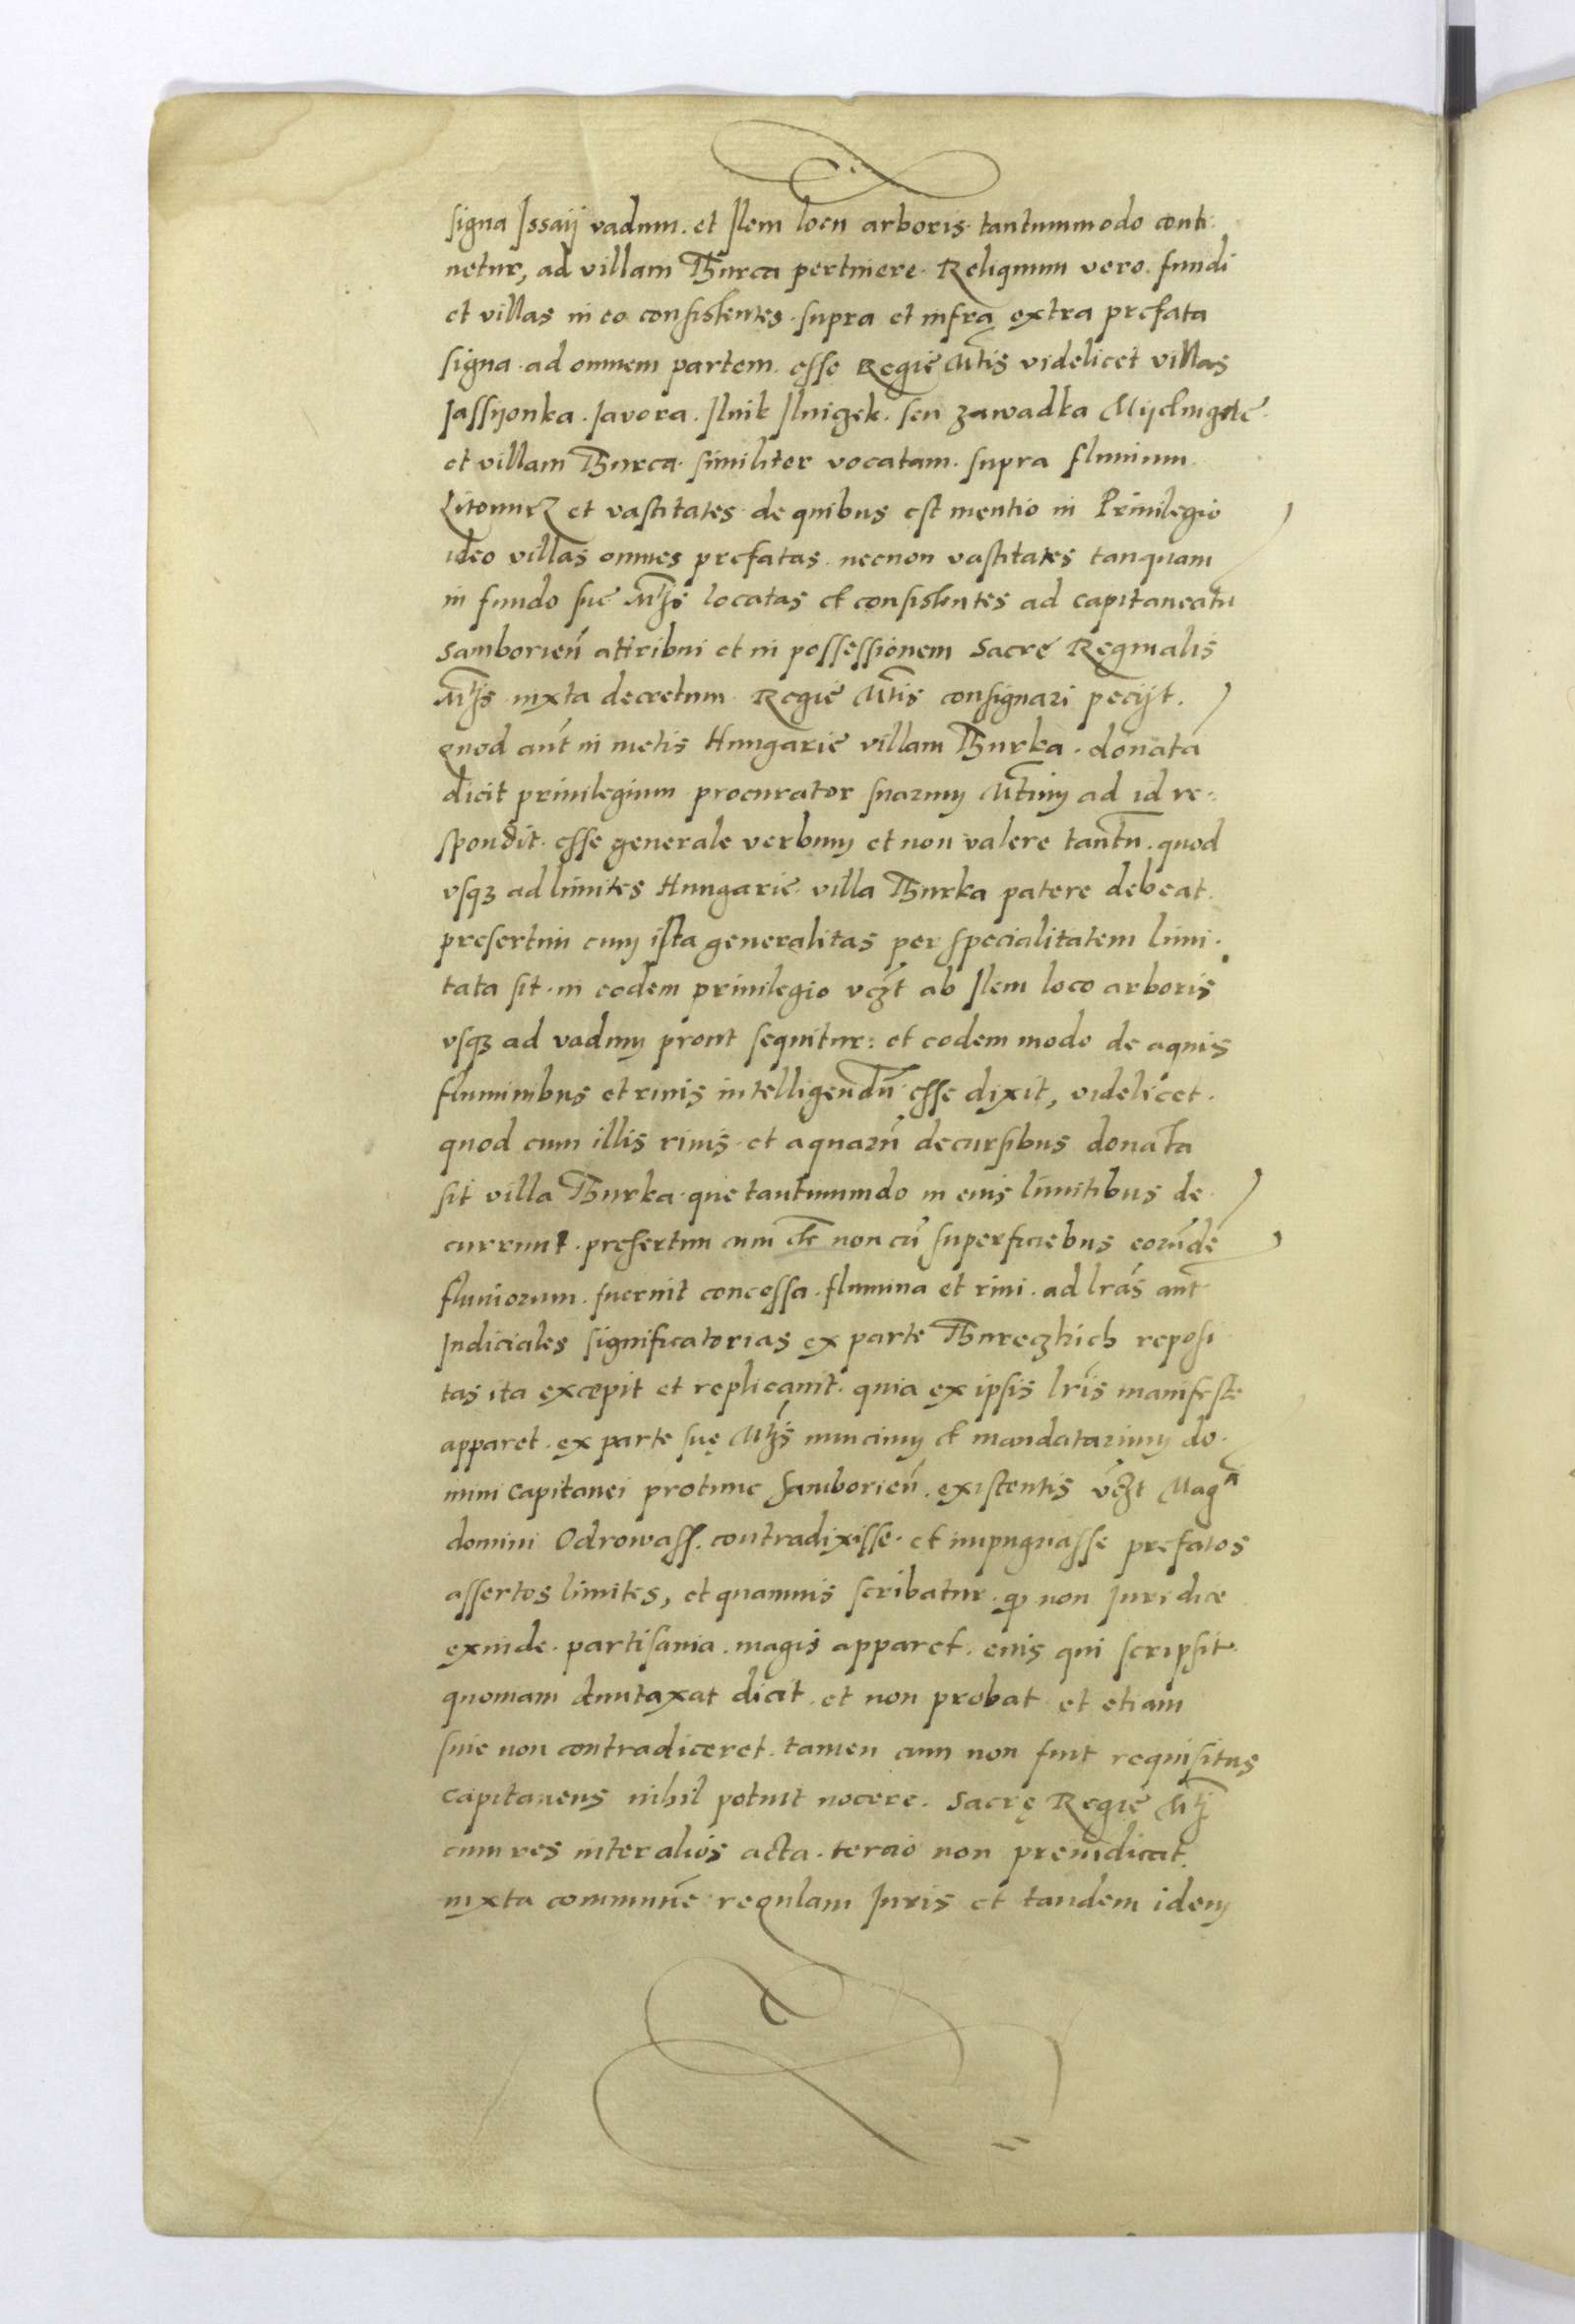 signa Issaij vadum. et Ilem locū arboris tantummodo conti-
netur, ad villam Thurca pertinere. Reliquum vero. fundi
et villas in eo consistentes. supra et infra extra prefata
signa. ad omnem partem. esse Regiē Mtis videlicet villas
Jassÿonka. Javora. Ilnik Ilnigek. seu zawadka
et villam Thurca. similiter vocatam. supra fluuium.
Litomirz et vastitates de quibus est mentio in Priuilegio
ideo villas omnes prefatas. necnon vastitates tanquam
in fundo sue Mtis locatas et consisteñtes ad capitaneatū
Samborieñ attribui et in possessionem Sacre Reginalis
Mtis iuxta decretum Regiē Mtis consignari petijt.
quod aūt in metis Hungariē villam Thurka. donatā
dicit priuilegium procurator suarum Mtum ad id re-
spondit. esse generale verbum et non valere tantū. quod
vsqз ad limites Hungariē villa Thurka patere debeat.
presertim cum ista generalitas per specialitatem limi-
tata sit. in eodem priuilegio vczt ab Ilem loco arboris
vsqз ad vadum prout sequitur: et eodem modo de aquis
fluminibus et riuis intelligendū esse dixit, videlicet.
quod cum illis riuis et aquarū decursibus donata
sit villa Thurka. que tantummdo in eius limitibus de-
currunt. presertim cum etc non cū superficiebus eorūdē
fluuiorum. fuerint concessa. flumina et riui. ad lrās aūt
Judiciales significatorias ex parte Thureczkich reposi
tas ita excepit et replicauit. quia ex ipsis lris manifeste
apparet. ex parte suę Mtis nuncium et mandatarium do-
mini Capitanei protunc Samborieñ. existentis vczt Magci
domini Odrowass. contradixisse. et impugnasse prefatos
assertos limites, et quamuis scribatur. qͥ non Juridice
exinde. partisania. magis apparet. eius qui scripsit.
quoniam dumtaxat dicit. et non probat et etiam
siue non contradiceret. tamen cum non fuit requisitus
capitaneus nihil potuit nocere. Sacrę Regiē Mti
cum res interalios acta. tercio non preiudicat.
iuxta communē regulam Juris et tandem idem